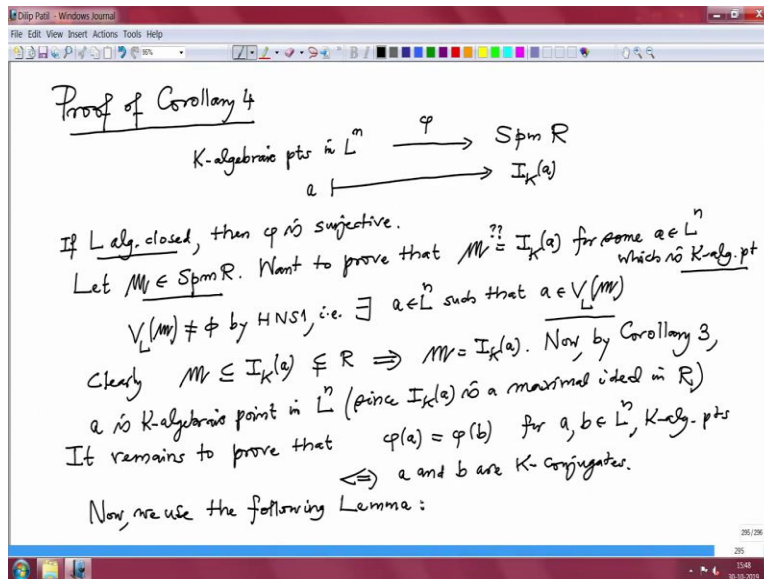 Dilip Patil - Windows Journal
File Edit View Insert Actions Tools Help
Proof of Corollary 4
K-algebraic pts in Lⁿ —φ→ Spm R
a ⟼ I_K(a)
If L alg. closed, then φ is surjective.
Let 𝔪 ∈ Spm R. Want to prove that 𝔪 =?? I_K(a) for some a ∈ Lⁿ
which is K-alg. pt
V_L(𝔪) ≠ ϕ by HNS1, i.e. ∃ a ∈ Lⁿ such that a ∈ V_L(𝔪)
Clearly 𝔪 ⊆ I_K(a) ⊊ R ⇒ 𝔪 = I_K(a). Now, by Corollary 3,
a is K-algebraic point in Lⁿ (since I_K(a) is a maximal ideal in R)
It remains to prove that φ(a) = φ(b) for a, b ∈ Lⁿ, K-alg. pts
⟺ a and b are K-conjugates.
Now, we use the following Lemma :
295/296
295
15:48
30-10-2019